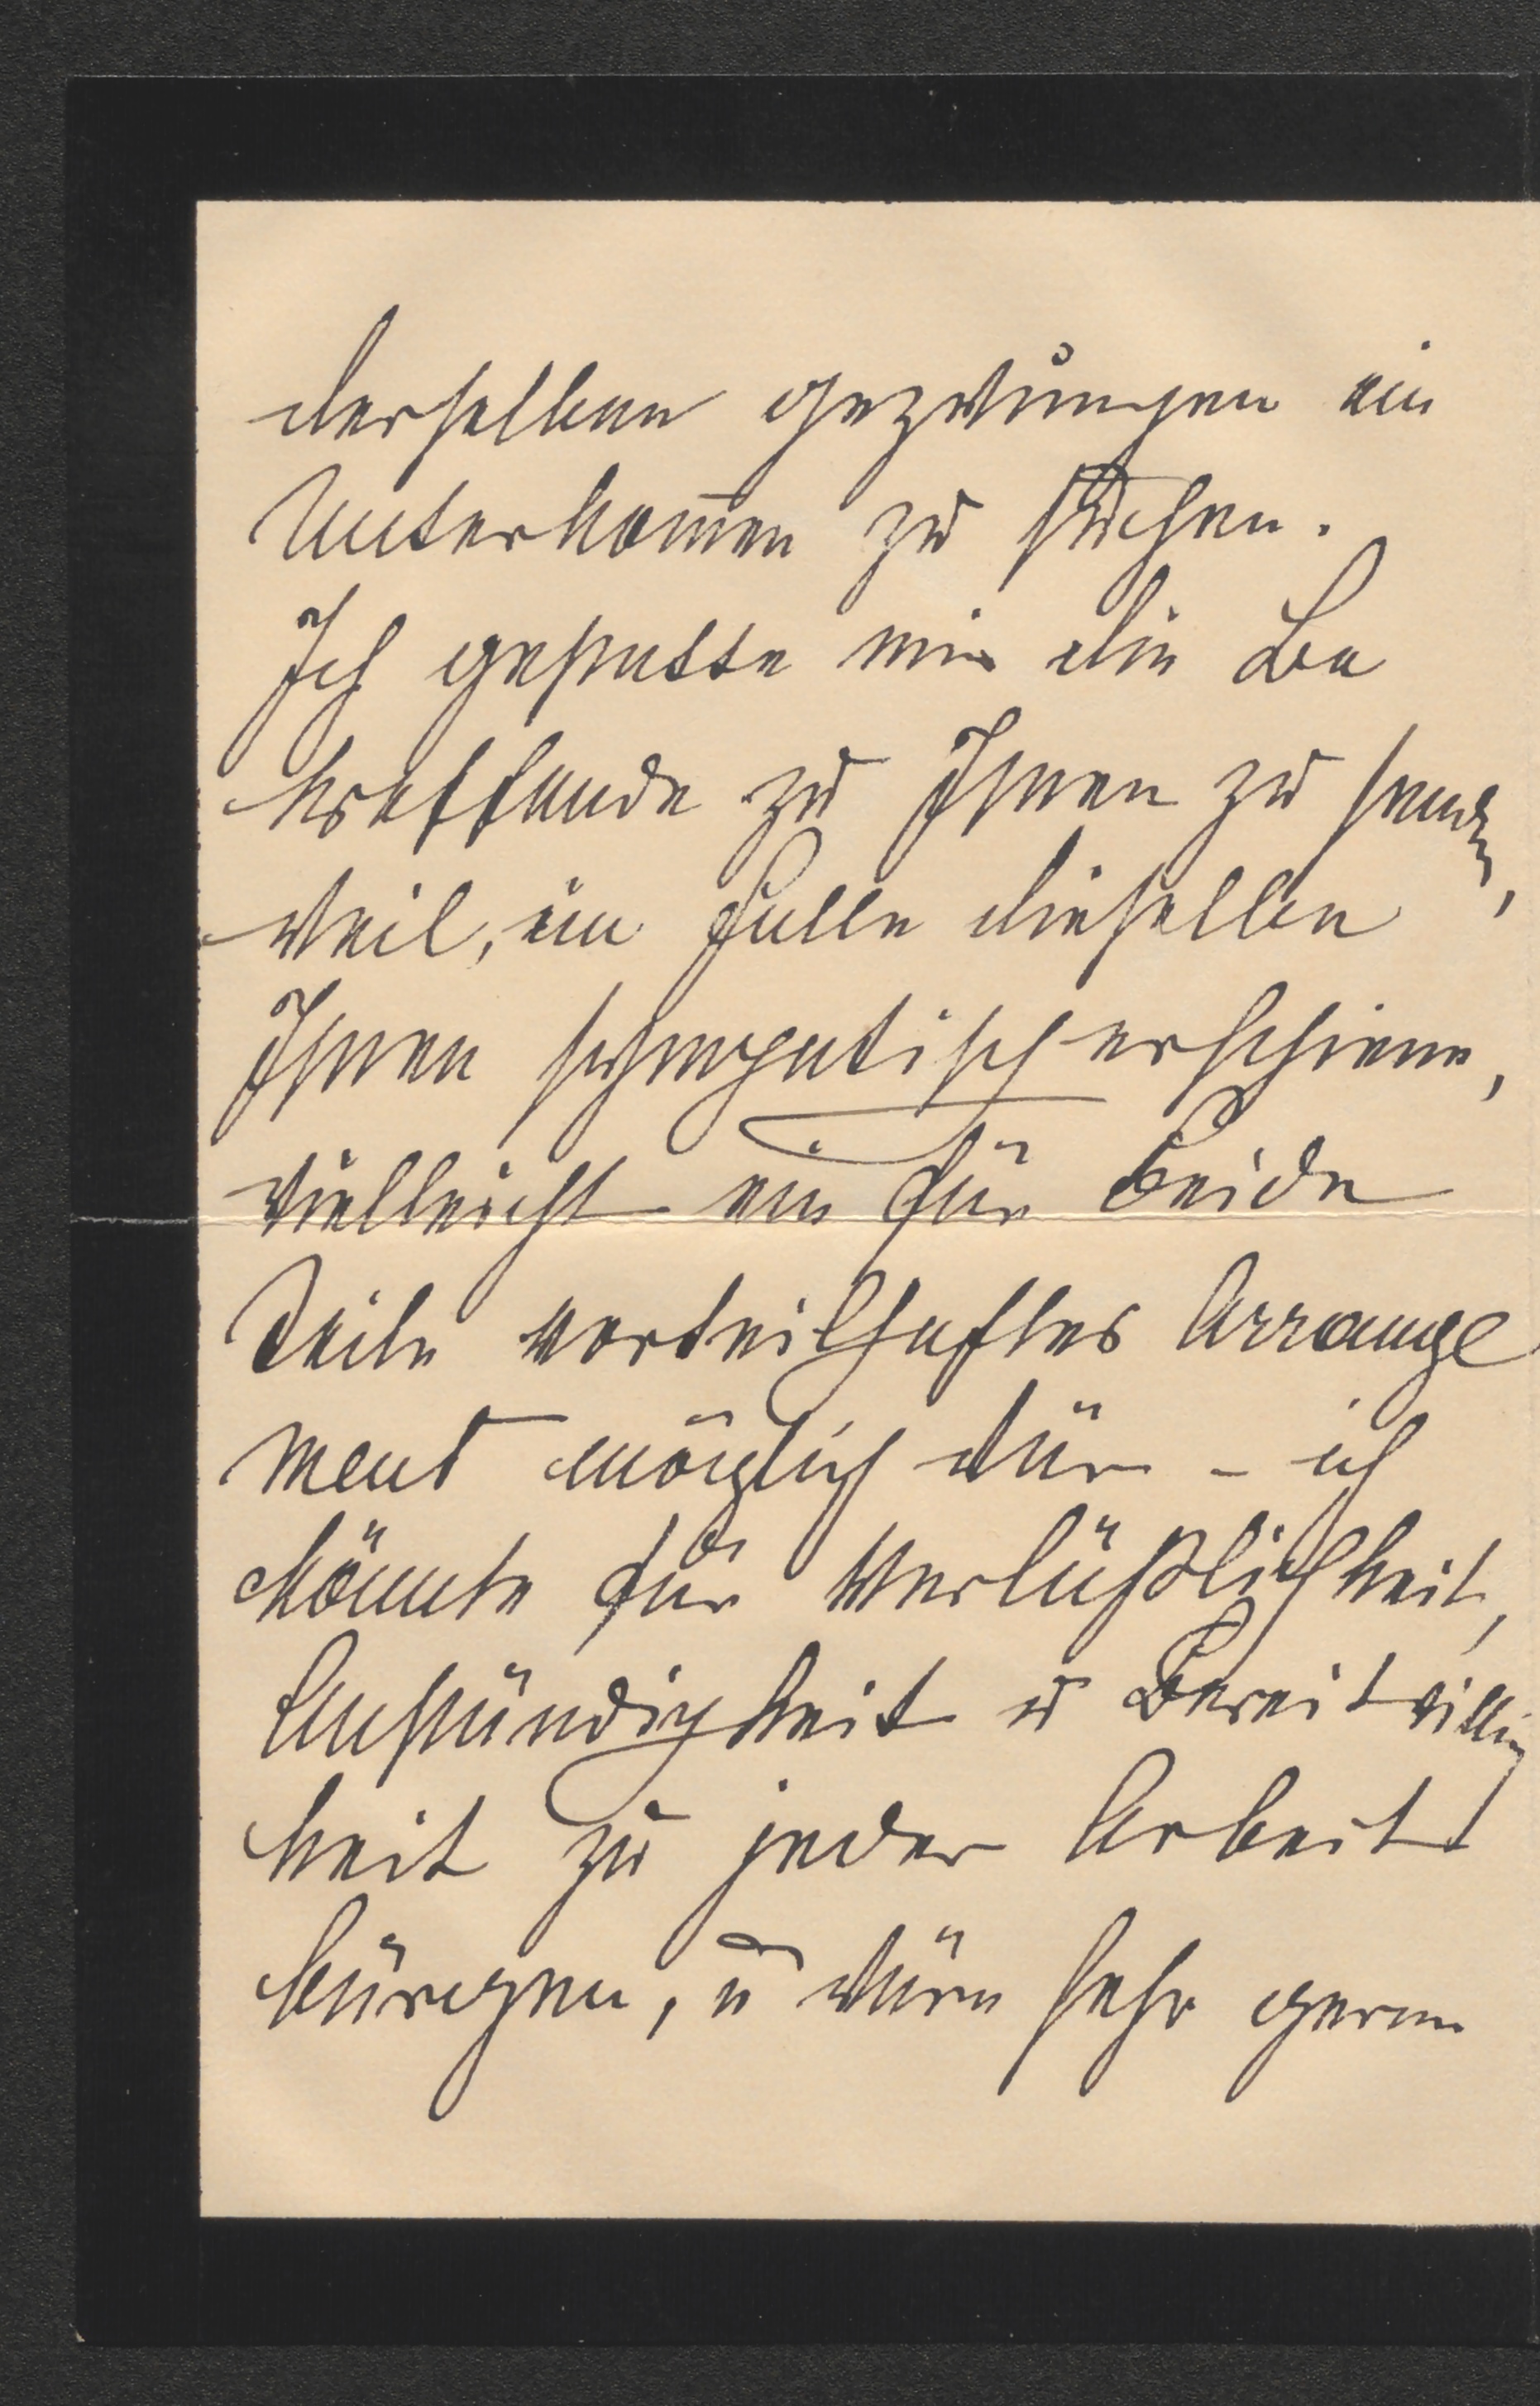 derselben gezwungen ein
Unterkom̅en zu suchen.
Ich gestatte mir die Be
treffende zu Ihnen zu senden,
weil, im Falle dieselbe
Ihnen sympatisch erschiene,
vielleicht ein für beide
Teile vorteilhaftes Arrange
ment möglich wär – ich
könnte für Verläßlichkeit,
Anständigkeit u Bereitwillig
keit zu jeder Arbeit
bürgen, u wäre sehr gerne